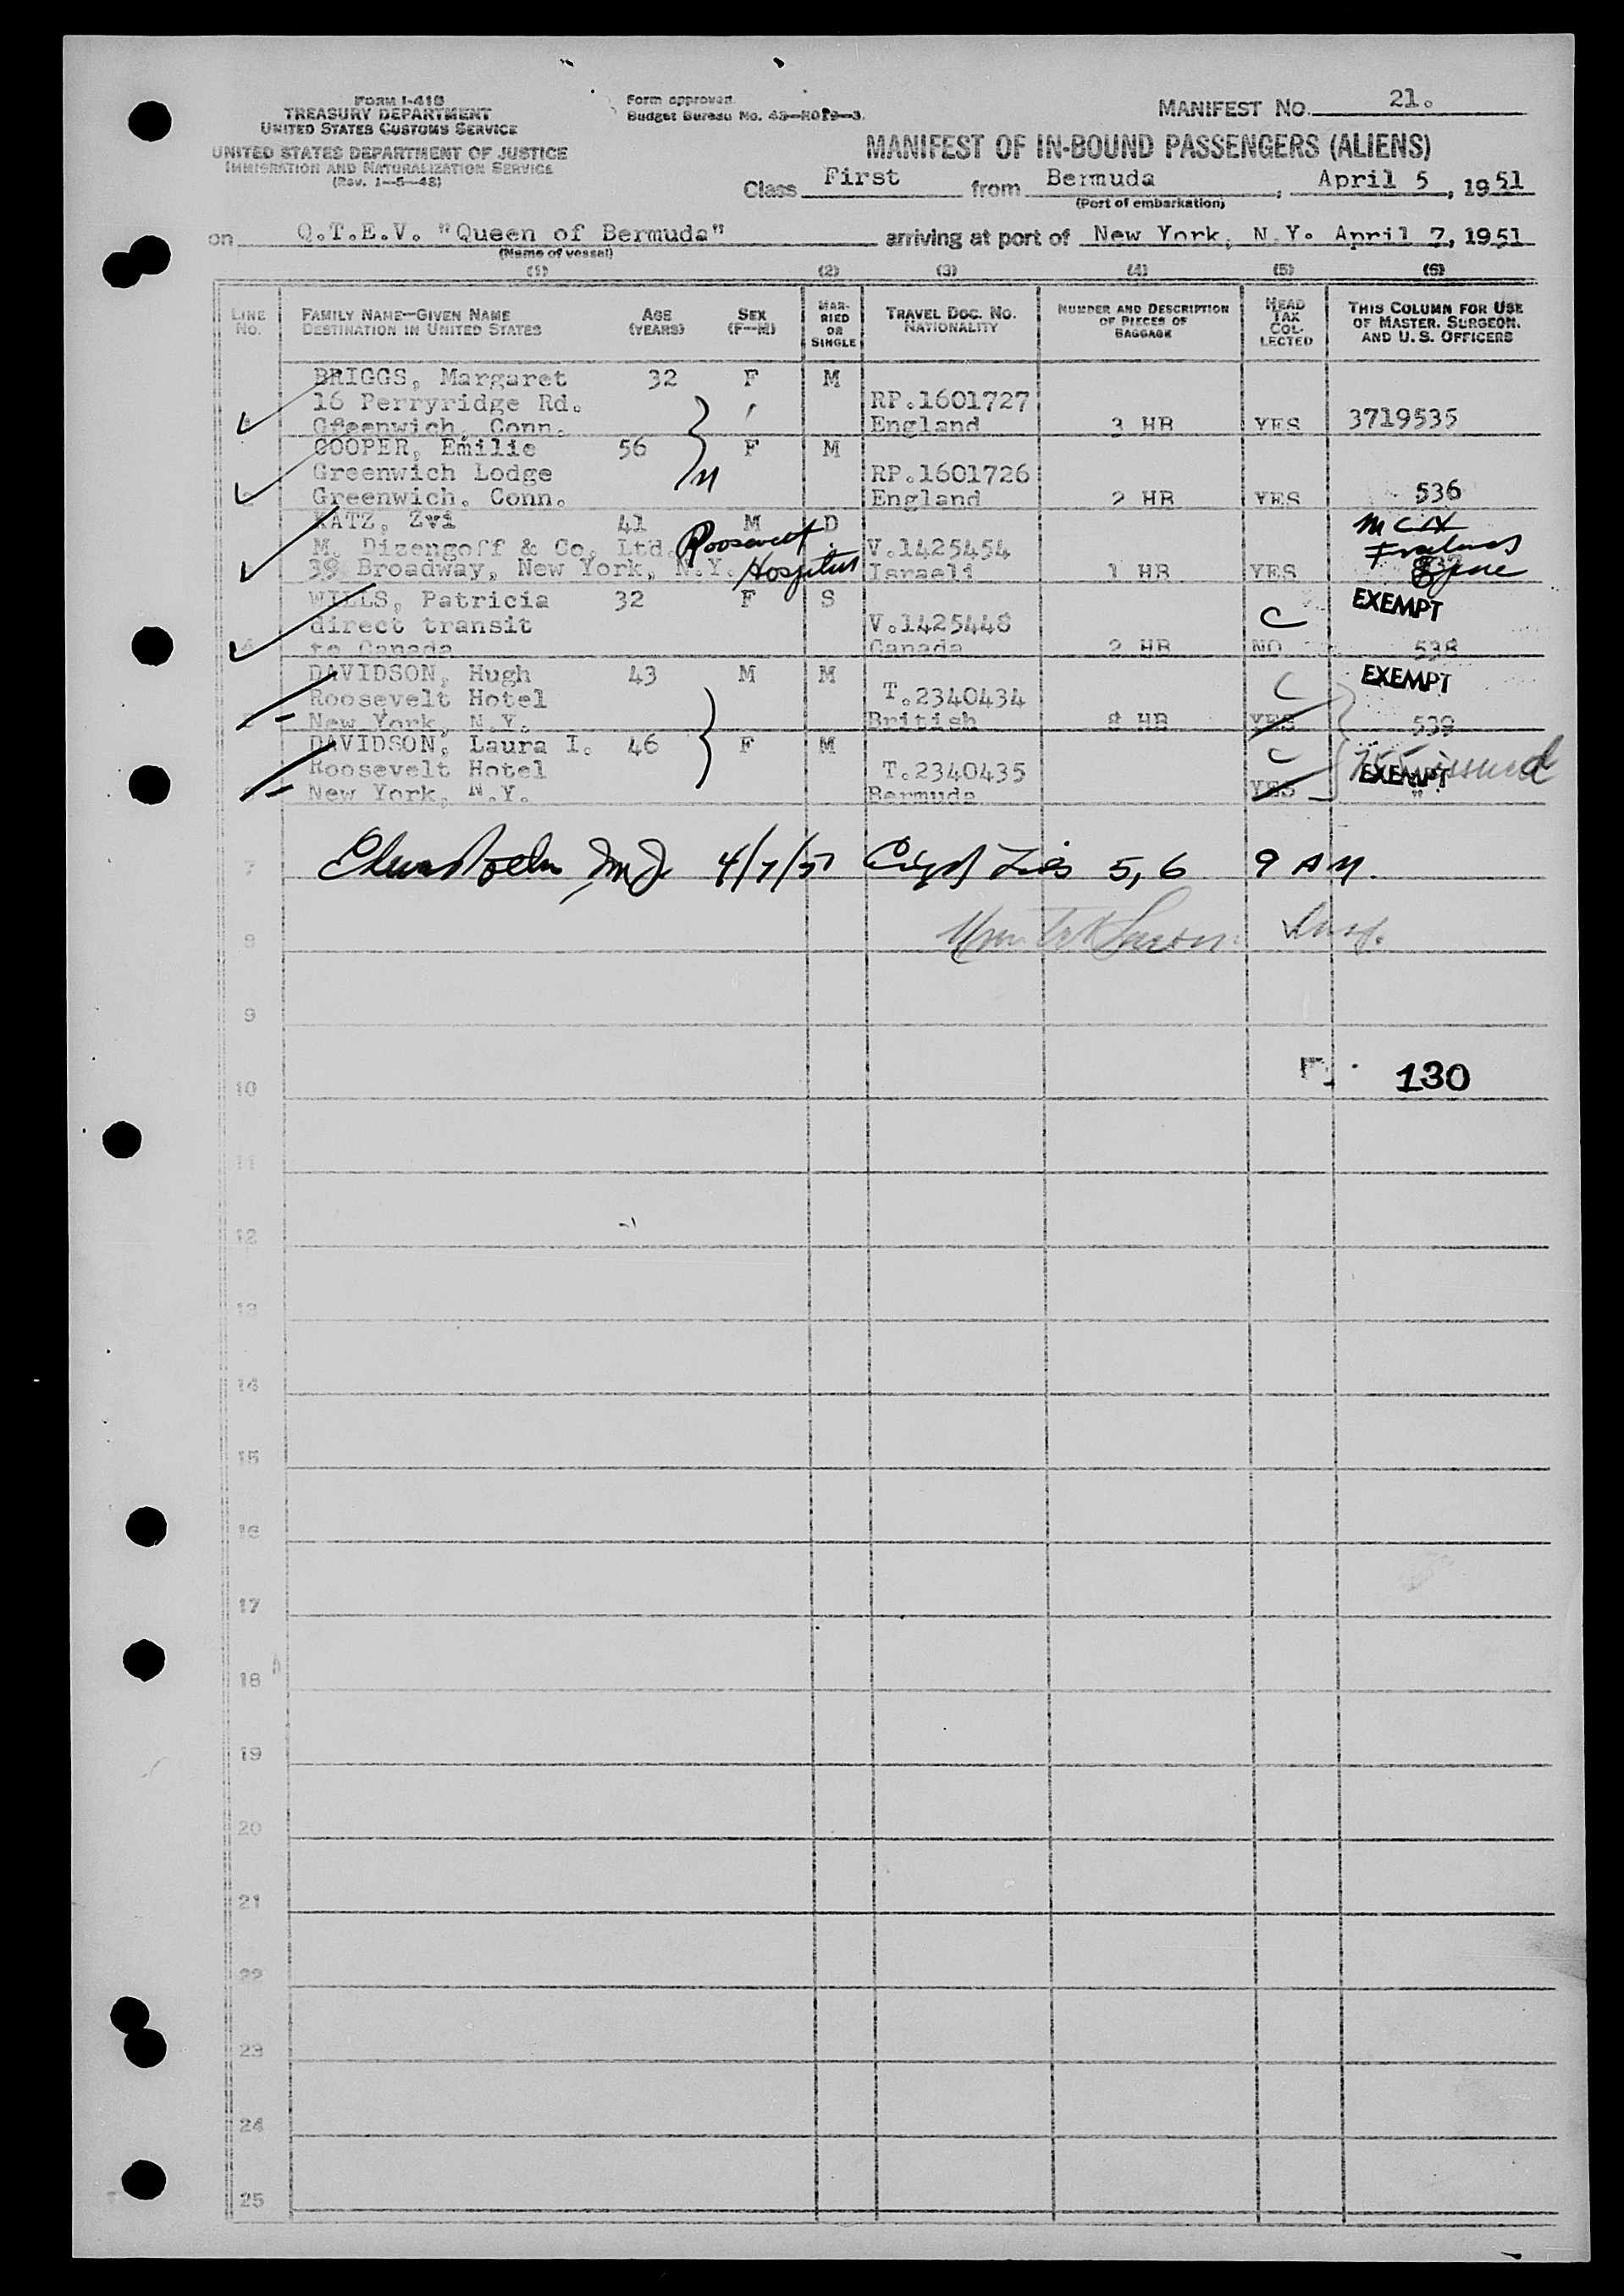 FORM I-418
TREASURY DEPARTMENT
UNITED STATES CUSTOMS SERVICE
UNITED STATES DEPARTMENT OF JUSTICE
IMMIGRATION AND NATURALIZATION SERVICE
(Rev. 1-5-48)
Form approved.
Budget Bureau No. 43-R019-3.
MANIFEST NO. 21.
MANIFEST OF IN-BOUND PASSENGERS (ALIENS)
Class First from Bermuda, April 5, 1951
(Port of embarkation)
on Q.T.E.V. "Queen of Bermuda" arriving at port of New York, N.Y. April 7, 1951
(Name of vessel)
(1) (2) (3) (4) (5) (6)
LINE No. FAMILY NAME—GIVEN NAME DESTINATION IN UNITED STATES AGE (YEARS) SEX (F—M) MARRIED OR SINGLE TRAVEL DOC. NO. NATIONALITY NUMBER AND DESCRIPTION OF PIECES OF BAGGAGE HEAD TAX COLLECTED THIS COLUMN FOR USE OF MASTER, SURGEON, AND U. S. OFFICERS
BRIGGS, Margaret 32 F M
16 Perryridge Rd. RP.1601727
Greenwich, Conn. England 3 HB YES 3719535
COOPER, Emilie 56 F M
Greenwich Lodge RP.1601726
Greenwich, Conn. England 2 HB YES 536
KATZ, Zvi 41 M D
M. Dizengoff & Co. Ltd. Roosevelt V.1425454
39 Broadway, New York, N.Y. Hospital Israeli 1 HB YES
WILLS, Patricia 32 F S EXEMPT
direct transit V.1425448 C
to Canada Canada 2 HB NO 538
DAVIDSON, Hugh 43 M M EXEMPT
Roosevelt Hotel T.2340434 C
New York, N.Y. British 8 HB YES 539
DAVIDSON, Laura I. 46 F M C
Roosevelt Hotel T.2340435 EXEMPT issued
New York, N.Y. Bermuda YES "
7 4/7/51 5, 6 9 AM.
8
9
10 130
11
12
13
14
15
16
17
18
19
20
21
22
23
24
25